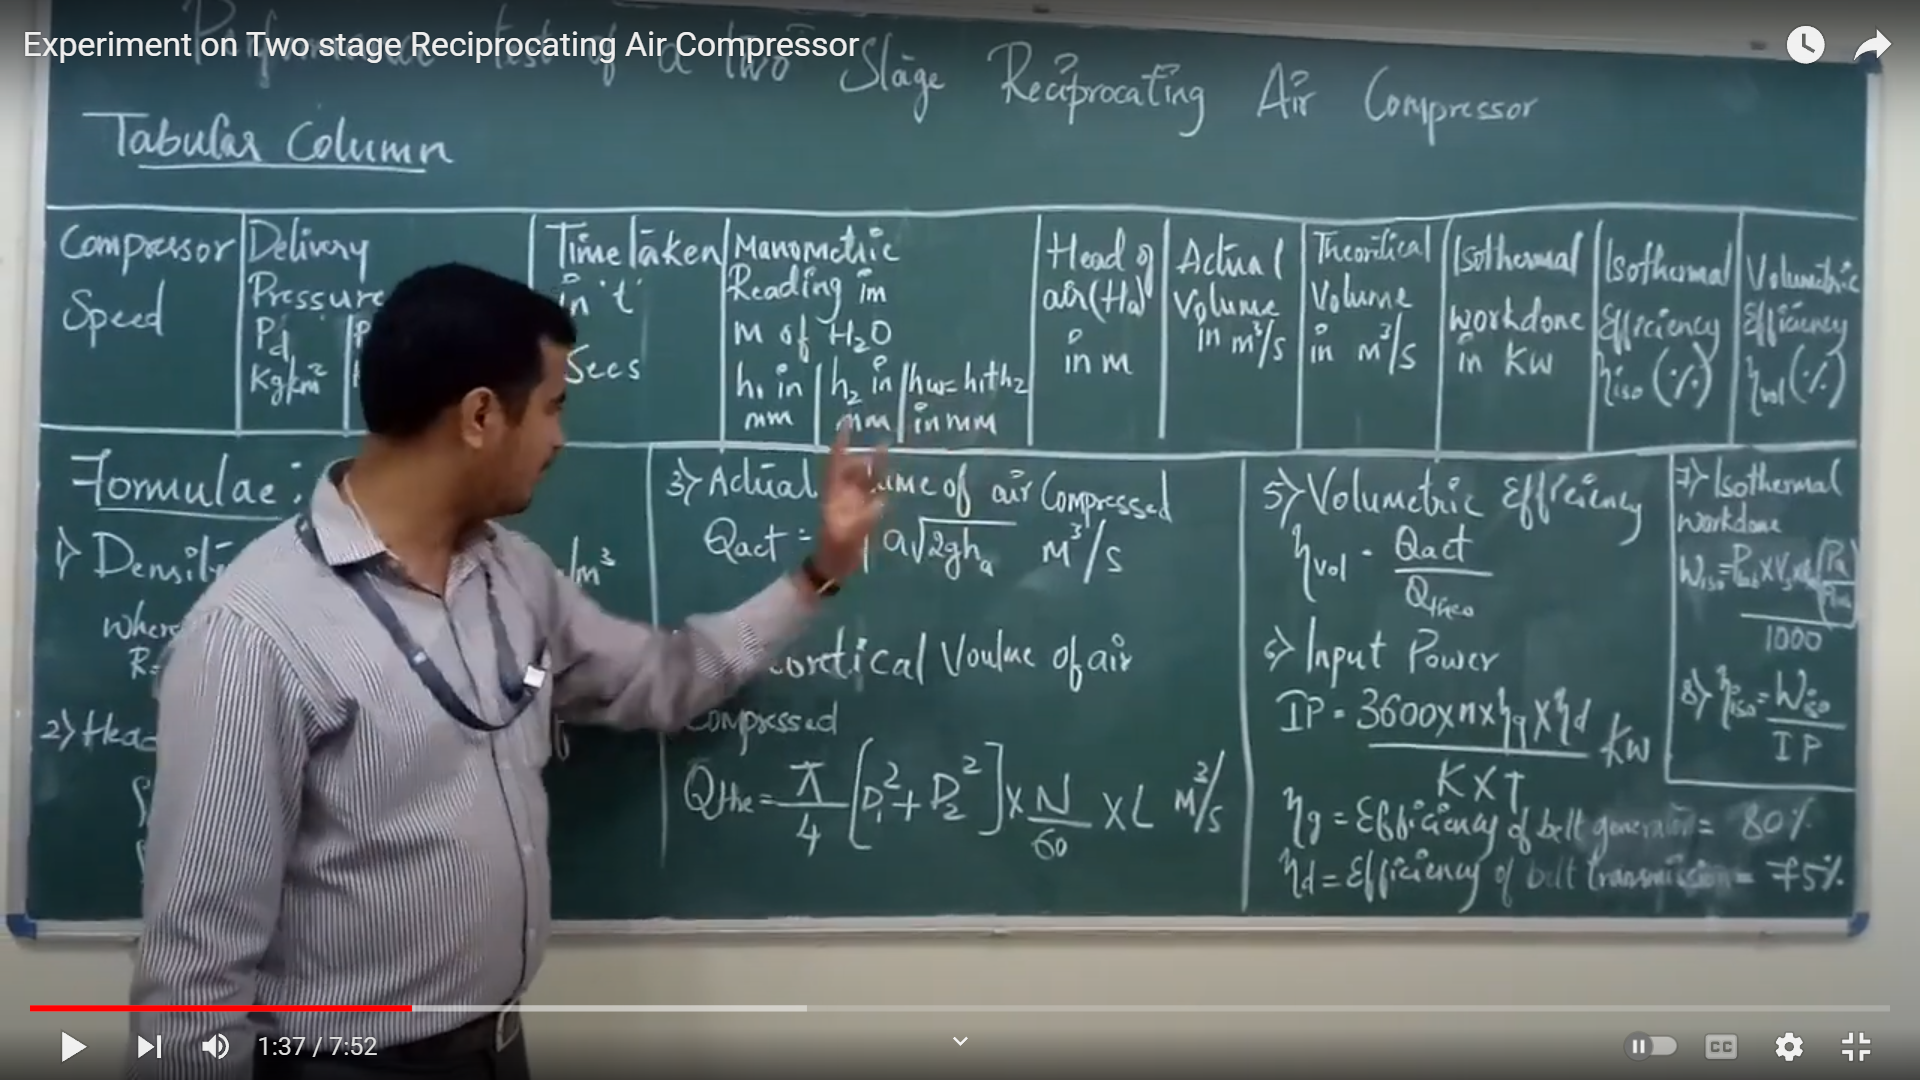 Experiment on Two stage Reciprocating Air Compressor
test of a Two Stage Reciprocating Air Compressor
Tabular Column
Compressor Speed
Delivery Pressure
Pd
Kg/cm²
Time Taken in 't' Secs
Manometric Reading in m of H2O
h1 in mm
h2 in mm
hw = h1+h2 in mm
Head of air (Ha) in m
Actual Volume in m³/s
Theoritical Volume in m³/s
Isothermal workdone in KW
Isothermal Efficiency ηiso (%)
Volumetric Efficiency ηvol (%)
Formulae:
1) Densit
/m³
R=
2) Hea
3) Actual of air Compressed
Qact = a√2gha M³/s
oretical Voulme of air
Compressed
Qthe = π/4 [D1² + D2²] x N/60 x L M³/s
5) Volumetric Efficiency
ηvol = Qact/Qtheo
6) Input Power
IP = 3600 x n x ηg x ηd / K x T KW
ηg = Efficiency of belt generator = 80%
ηd = Efficiency of belt transmission = 75%
7) Isothermal workdone
Wiso =
1000
8) ηiso = Wiso/IP
1:37 / 7:52
CC